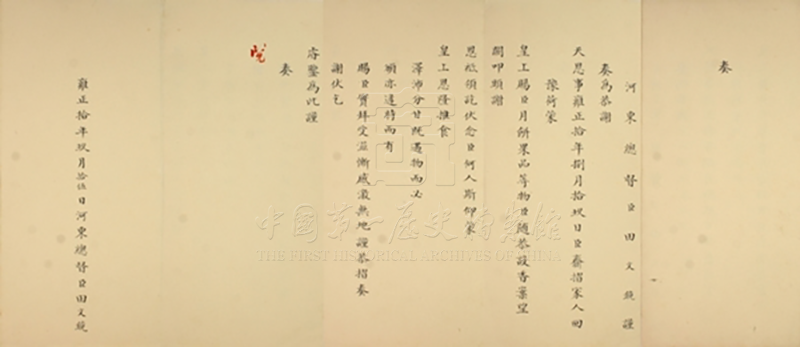 奏
河東總督臣田文鏡謹
奏為恭謝
天恩事雍正拾年捌月拾玖日臣齎摺家人回
豫荷蒙
皇上賜臣月餅果品等物臣隨恭設香案望
闕叩頭謝
恩祗領訖伏念臣何人斯仰蒙
皇上恩隆推食
澤沛分甘既遇物而必
頒亦逢時而有
賜臣寶拜受滋慚感激無地謹恭摺奏
謝伏乞
睿鑒為此謹
奏
覽
雍正拾年玖月拾伍日河東總督臣田文鏡
中國第一歷史檔案館
THE FIRST HISTORICAL ARCHIVES OF CHINA